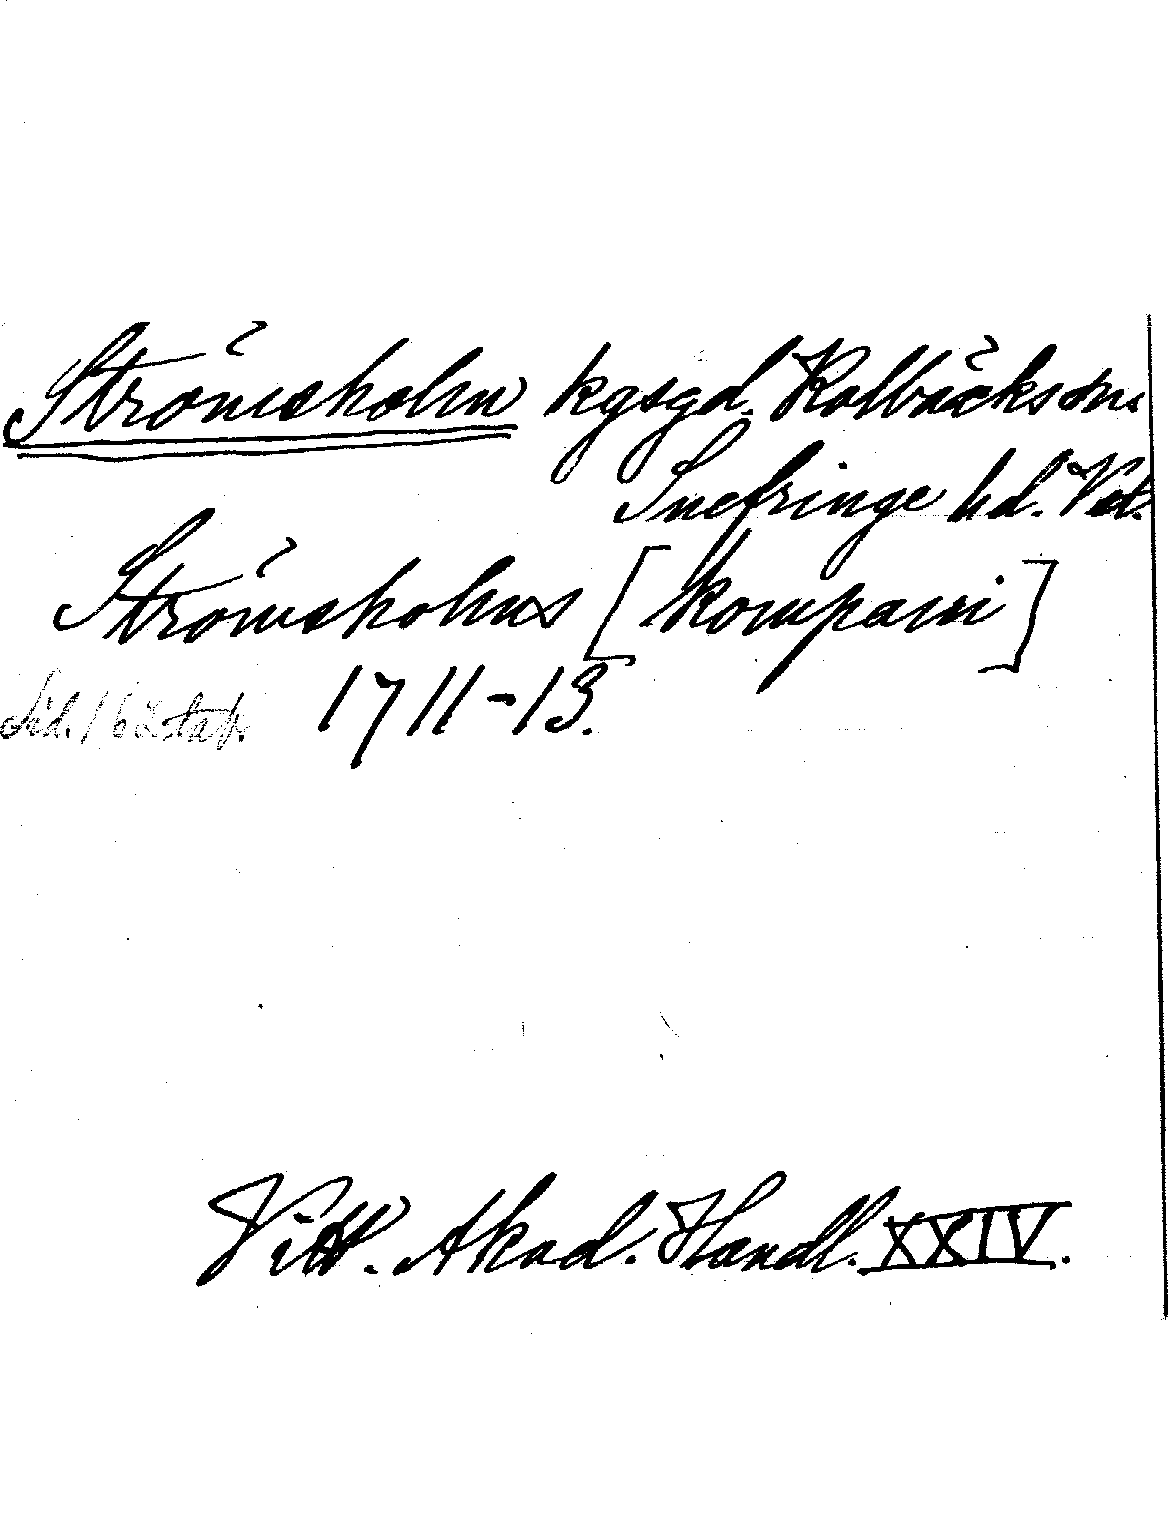 Strömsholm kgsgd. Kolbäcks sn.
Snefringe hd. Vstl.
Strömsholms [kompani]
1711-13.
Vitt. Akad. Handl. XXIV.